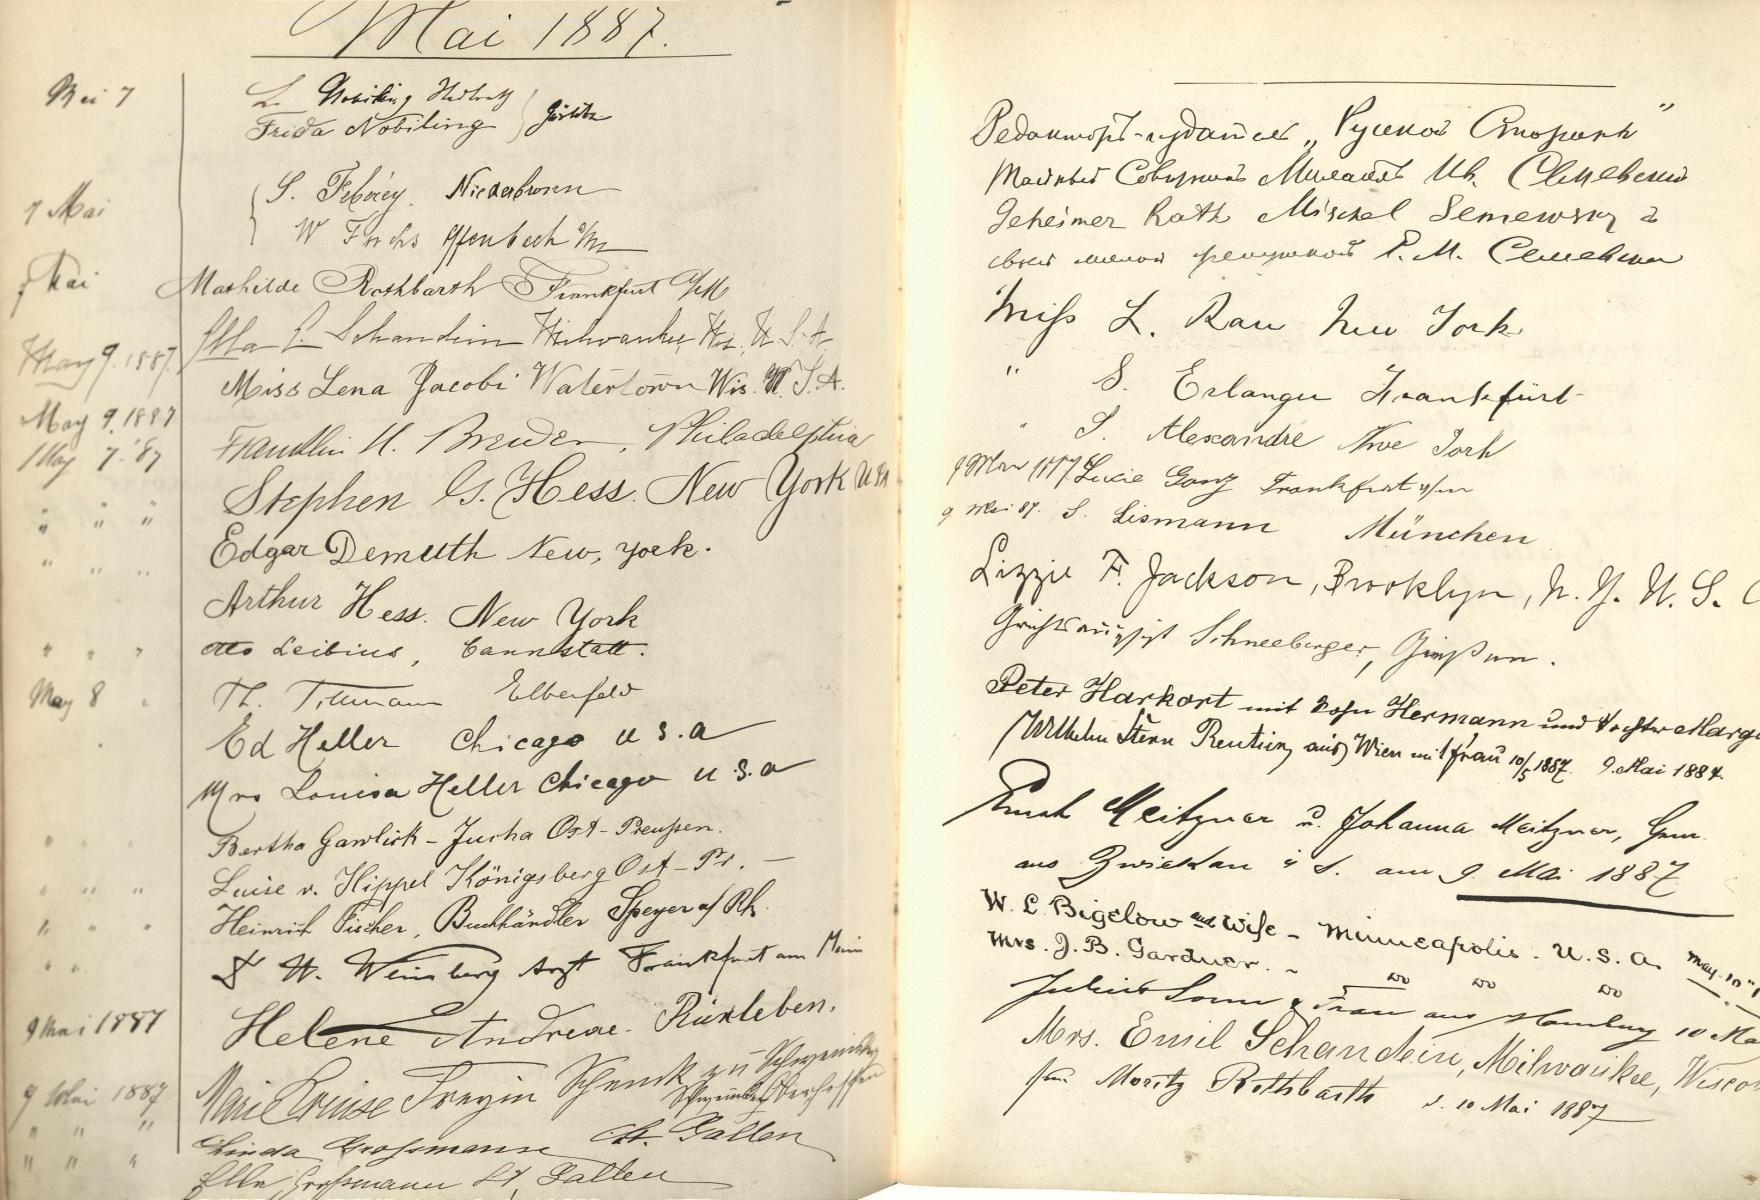 Mai 1887.
Mai 7 L. Nobiling
Frida Nobiling Görlitz
7 Mai S. Niederbronn
W Fuchs Offenbach a/M
Mai Mathilde Rothbarth Frankfurt a/M
May 9. 1887. Ella E. Schandein Milwaukee, Wis. U. S. A
Miss Lena Jacobi Watertown Wis. U. S. A.
May 9. 1887 Franklin H. Brewer, Philadelphia
May 7. '87 Stephen G. Hess. New York USA
" " " Edgar Demuth New, york.
" " " Arthur Hess. New York
" " " Otto Leibius, Cannstatt.
May 8 " Th. Tillmann Elberfeld
Ed Heller Chicago U S. a
Mrs Louisa Heller Chicago U. S. a
Bertha Gawlick - Jucha Ost-Preußen.
" " " Luise v. Hippel Königsberg Ost-Pr. —
" " " Heinrich Fischer, Buchhändler Speyer a/Rh.
" " W. Weinsberg Arzt Frankfurt am Main
9 Mai 1887 Helene Andreae. Rüxleben.
9 Mai 1887 Marie Louise Freyin Schenck zu Schweinsberg
Schweinsberg Oberhessen
" " " Linda Großmann St. Gallen
" " " Ella Großmann St. Gallen
Редакторъ-издатель „Русской Старины"
Тайный Совѣтникъ Михаилъ Ив. Семевскій
Geheimer Rath Mischel Semewsky з
своей милой супругой Е. М. Семевской
Miss L. Rau New York
" S. Erlanger Frankfurt
" S. Alexandre New York
9 Mai 1887 Lucie Ganz Frankfurt a/m
9 Mai 87. S. Lismann München
Lizzie F. Jackson, Brooklyn, N. Y. U. S.
Schneeberger, Gießen.
Peter Harkort mit Sohn Hermann und Tochter
Wilhelm Stern aus Wien mit Frau 10/5 1887. 9. Mai 1887.
Ernst Meitzner u. Johanna Meitzner,
aus Zwickau i/S. am 9 Mai 1887
W. L. Bigelow and Wife - Minneapolis. U. S. A. May. 10"
Mrs. J. B. Gardner. - " " "
Julius Sonn & Frau aus Hamburg 10
Mrs. Emil Schandein, Milwaukee,
Frau Moritz Rothbarth d. 10 Mai 1887